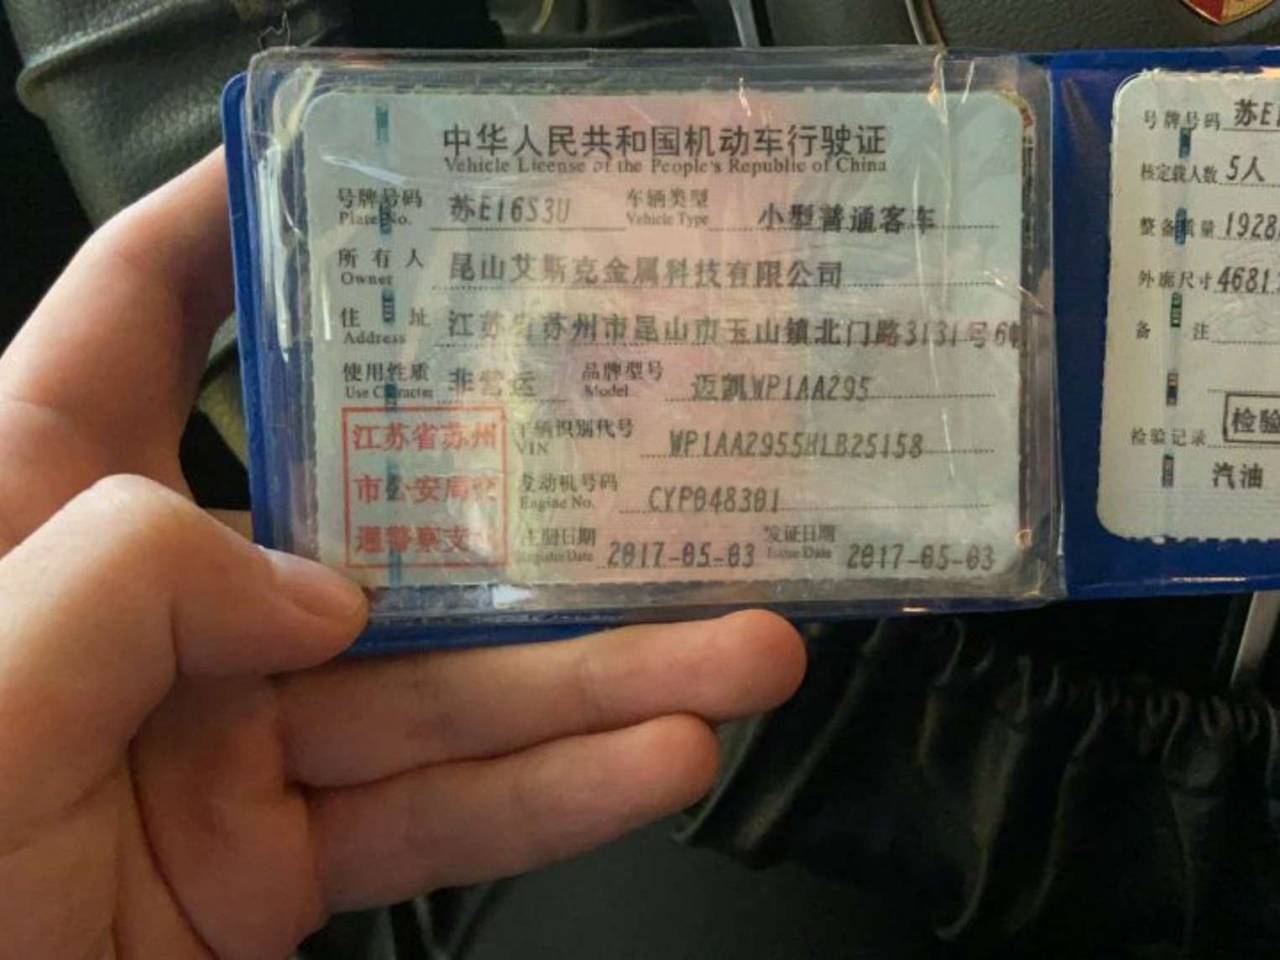 中华人民共和国机动车行驶证
Vehicle License of the People's Republic of China
号牌号码 苏E16S3U 车辆类型 小型普通客车
Plate No. Vehicle Type
所有人 昆山艾斯克金属科技有限公司
Owner
住址 江苏省苏州市昆山市玉山镇北门路3131号6幢
Address
使用性质 非营运 品牌型号 迈凯WP1AA295
Use Character Model
江苏省苏州
市公安局交
通警察支队
车辆识别代号 WP1AA2955HLB25158
VIN
发动机号码 CYP048301
Engine No.
注册日期 2017-05-03 发证日期 2017-05-03
Register Date Issue Date
号牌号码 苏E1
核定载人数 5人
整备质量 1928
外廓尺寸 4681
备注
检验记录 检验
汽油